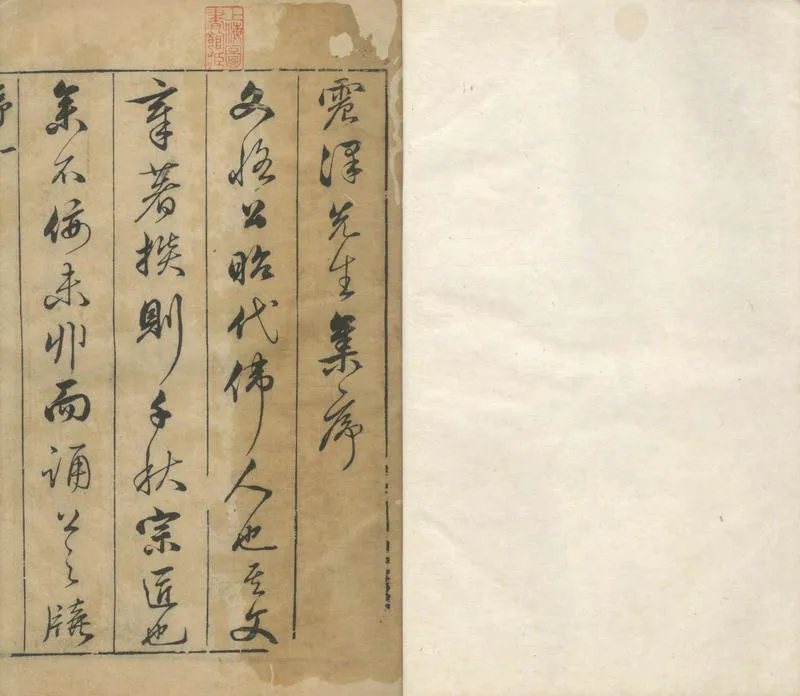 上海圖書館藏
震澤先生集序
文恪公昭代偉人也其文
章著撰則千秋宗匠也
余不佞未丱而誦公之牘
序一